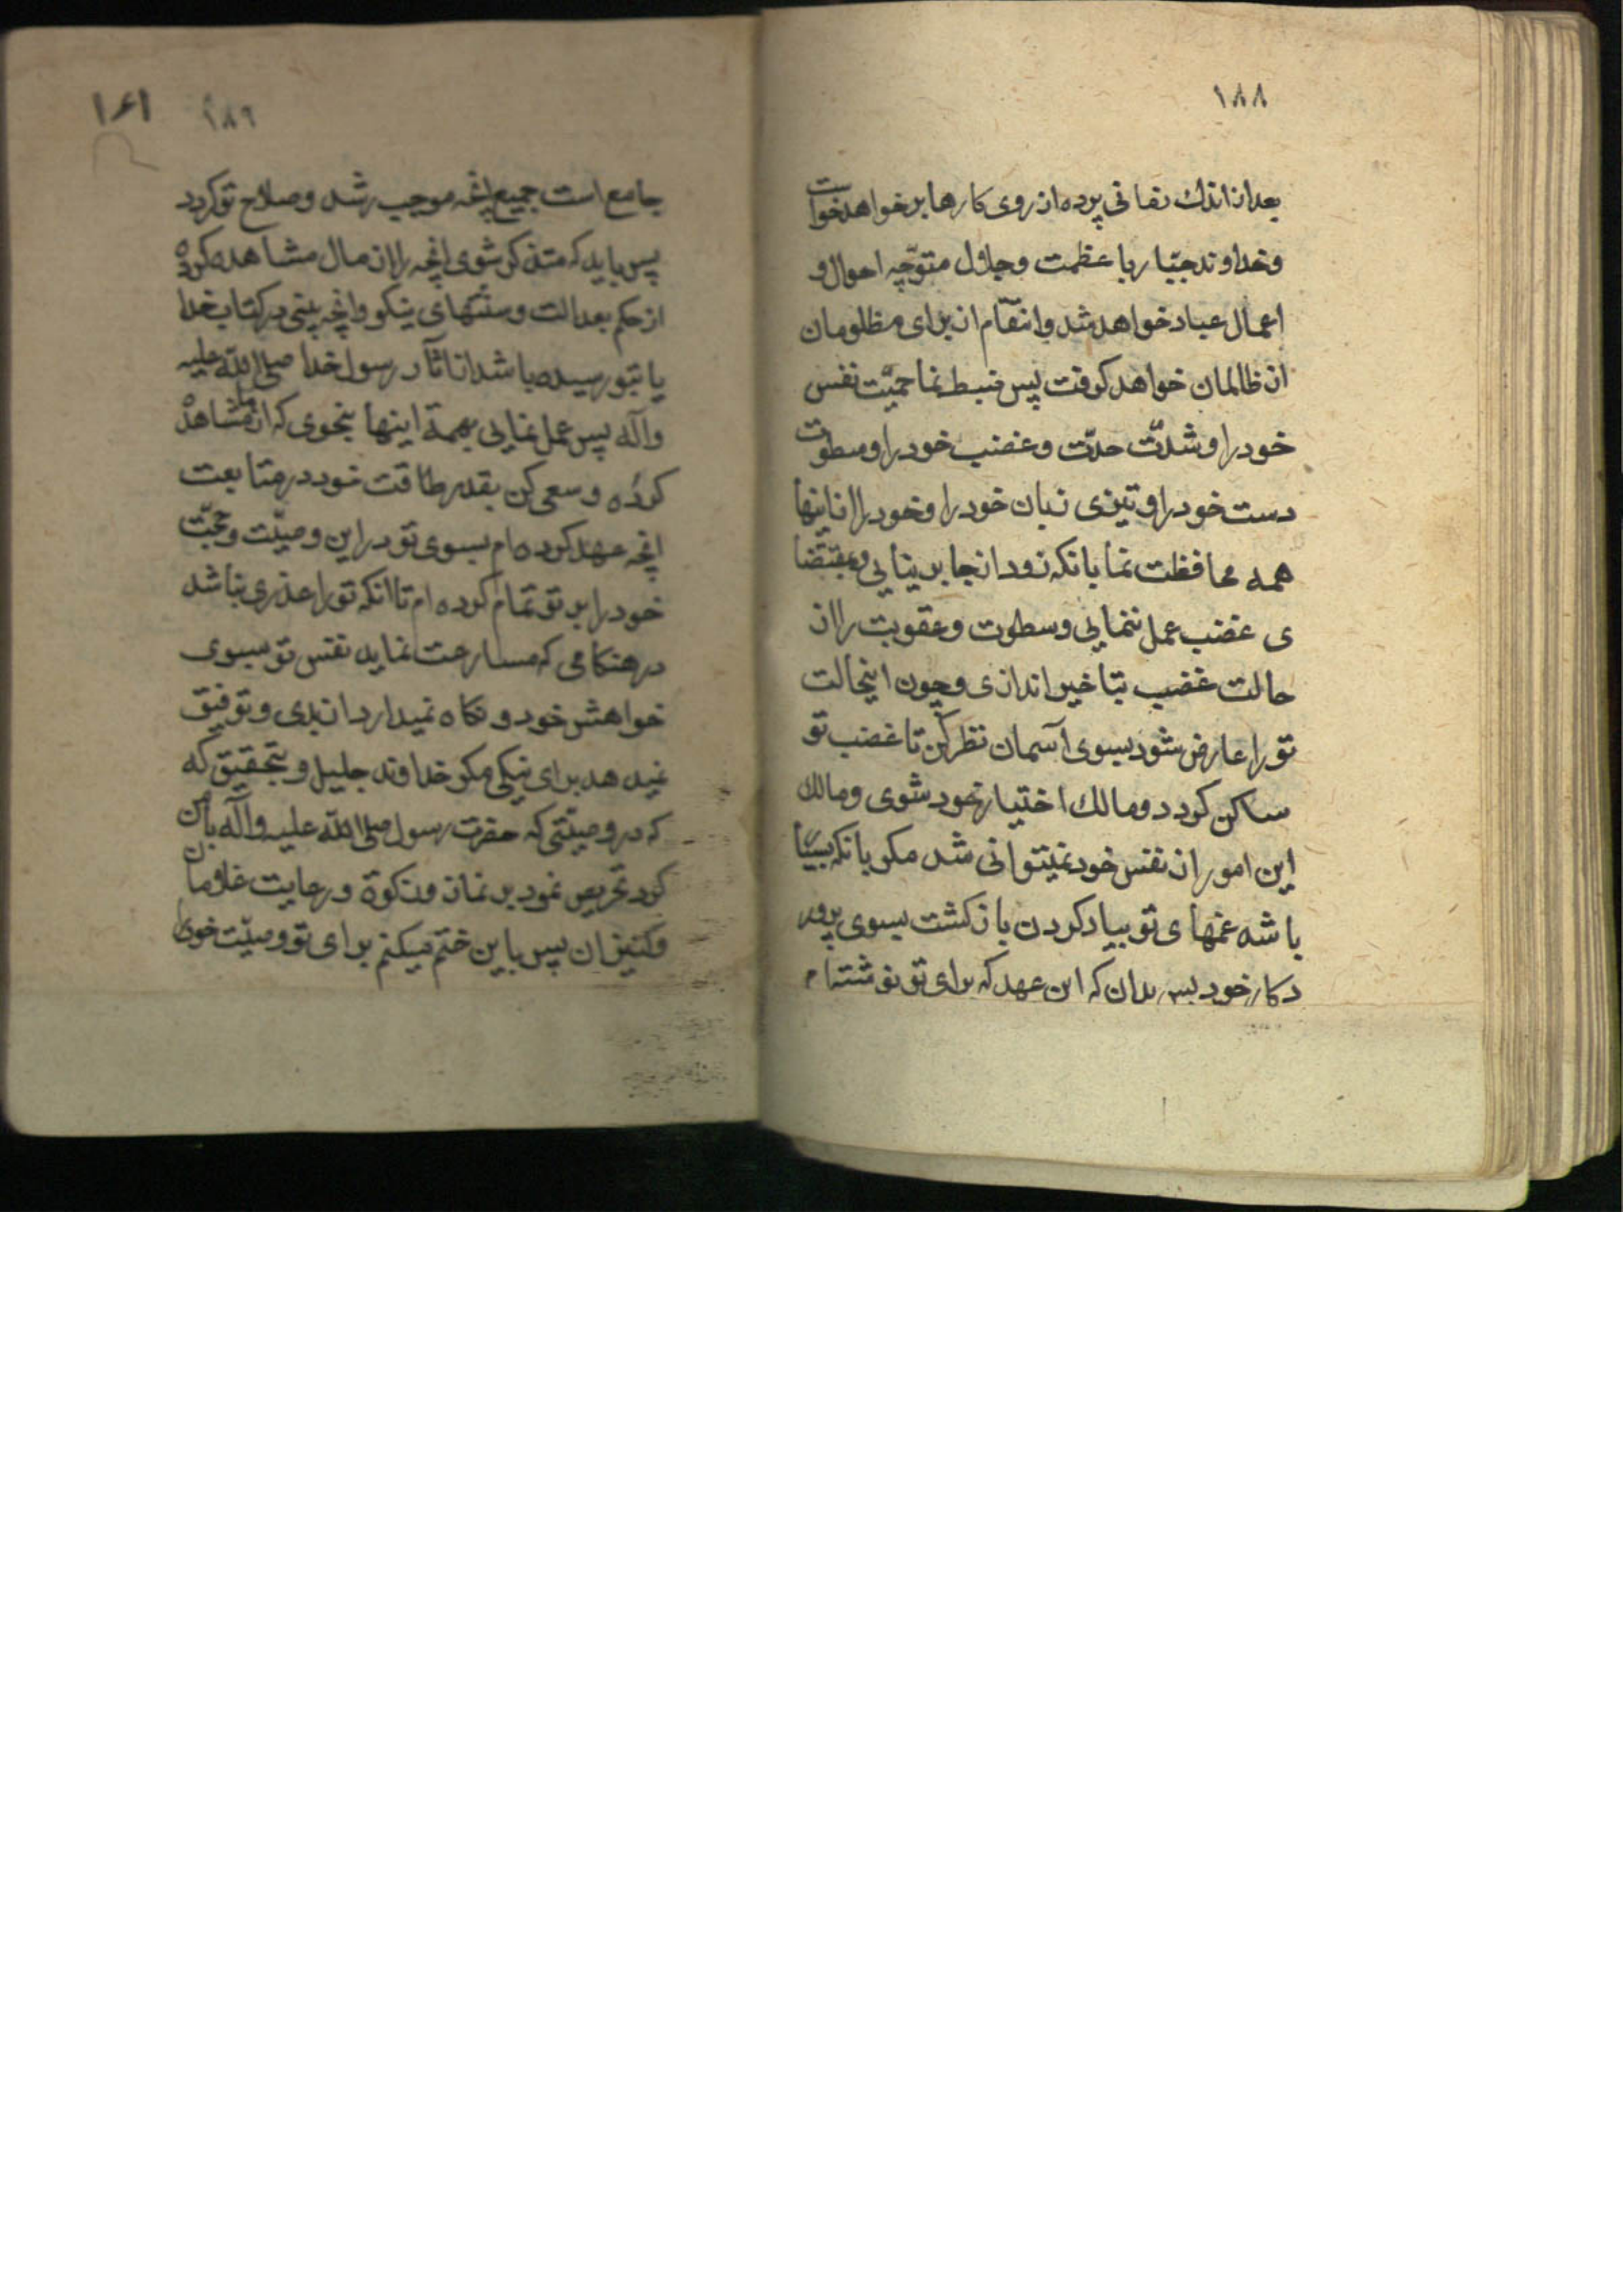 ۱۸۸
بعد از اندک زمانی پرده از روی کارها بر خواهد خواست
و خداوند جبّار با عظمت و جلال متوجّه احوال و
اعمال عباد خواهد شد و انتقام از برای مظلومان
از ظالمان خواهد کرفت پس ضبط نما حمیّت نفس
خود را و شدّت حدّت و غضب خود را و سطوت
دست خود را و تیزی زبان خود را و خود را از اینها
همه محافظت نما بانکه زود از جا بر نیایی و بمقتضا
ی غضب عمل ننمایی و سطوت و عقوبت را از
حالت غضب بتاخیر اندازی و چون اینحالت
تو را عارض شود بسوی آسمان نظر کن تا غضب تو
ساکن کردد و مالک اختیار خود شوی و مالک
این امور از نفس خود نمیتوانی شد مکر بانکه بسیا
باشد غمهای تو بیاد کردن بازکشت بسوی پرور
دکار خود پس بدان که این عهد که برای تو نوشته ام
۱۸۹
۱۶۱
جامع است جمیع انچه موجب رشد و صلاح تو کردد
پس باید که متذکر شوی انچه را از مال مشاهده کرده
از حکم بعدالت و سنّتهای نیکو و انچه بینی در کتاب خدا
یا بتو رسیده باشد از آثار رسول خدا صلی الله علیه
و آله پس عمل نمایی بهمهٔ اینها بنحوی که از ما مشاهده
کرده و سعی کن بقدر طاقت خود در متابعت
انچه عهد کرده ام بسوی تو در این وصیّت و حجّت
خود را بر تو تمام کرده ام تا انکه تو را عذری نباشد
در هنکامی که مسارعت نماید نفس تو بسوی
خواهش خود و نکاه نمیدارد از بدی و توفیق
نمیدهد برای نیکی مکر خداوند جلیل و بتحقیق که
که در وصیّتی که حضرت رسول صلی الله علیه و آله بمن
کرد تحریص نمود بر نماز و زکوة و رعایت غلامان
و کنیزان پس باین ختم میکنم برای تو وصیّت خود را